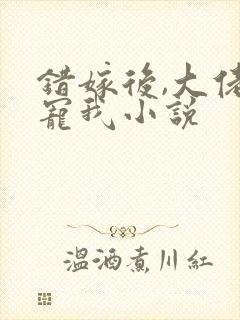 錯嫁後,大佬
寵我小說
溫酒煮川紅